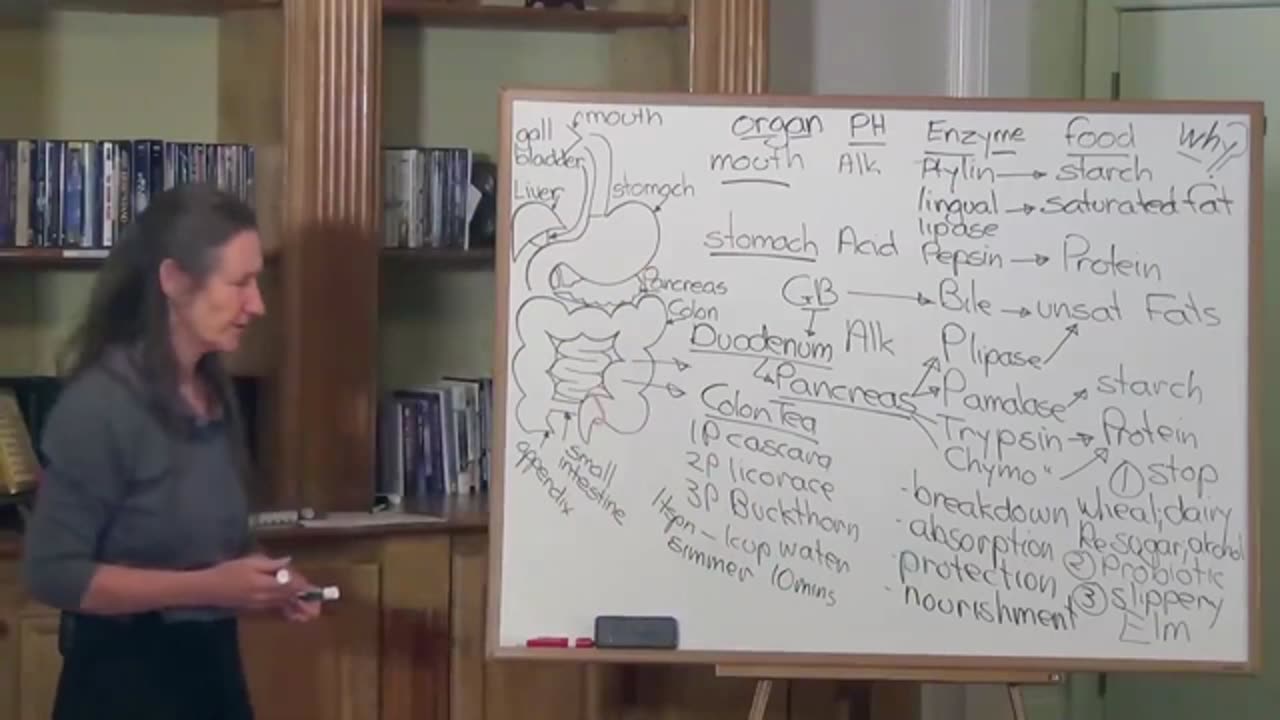 mouth
gall
bladder
Liver
stomach
Pancreas
Colon
small
intestine
appendix
organ PH Enzyme food Why?
mouth Alk Ptylin → starch
lingual → saturated fat
lipase
stomach Acid Pepsin → Protein
GB → Bile → unsat Fats
Duodenum Alk Plipase
Pancreas Pamalase starch
Trypsin → Protein
Chymo "
Colon Tea
1P cascara
2P licorace
3P Buckthorn
1tspn - 1cup water
simmer 10mins
·breakdown
·absorption
·protection
·nourishment
① stop
wheat, dairy
Re sugar, alcohol
② Probiotic
③ slippery
Elm